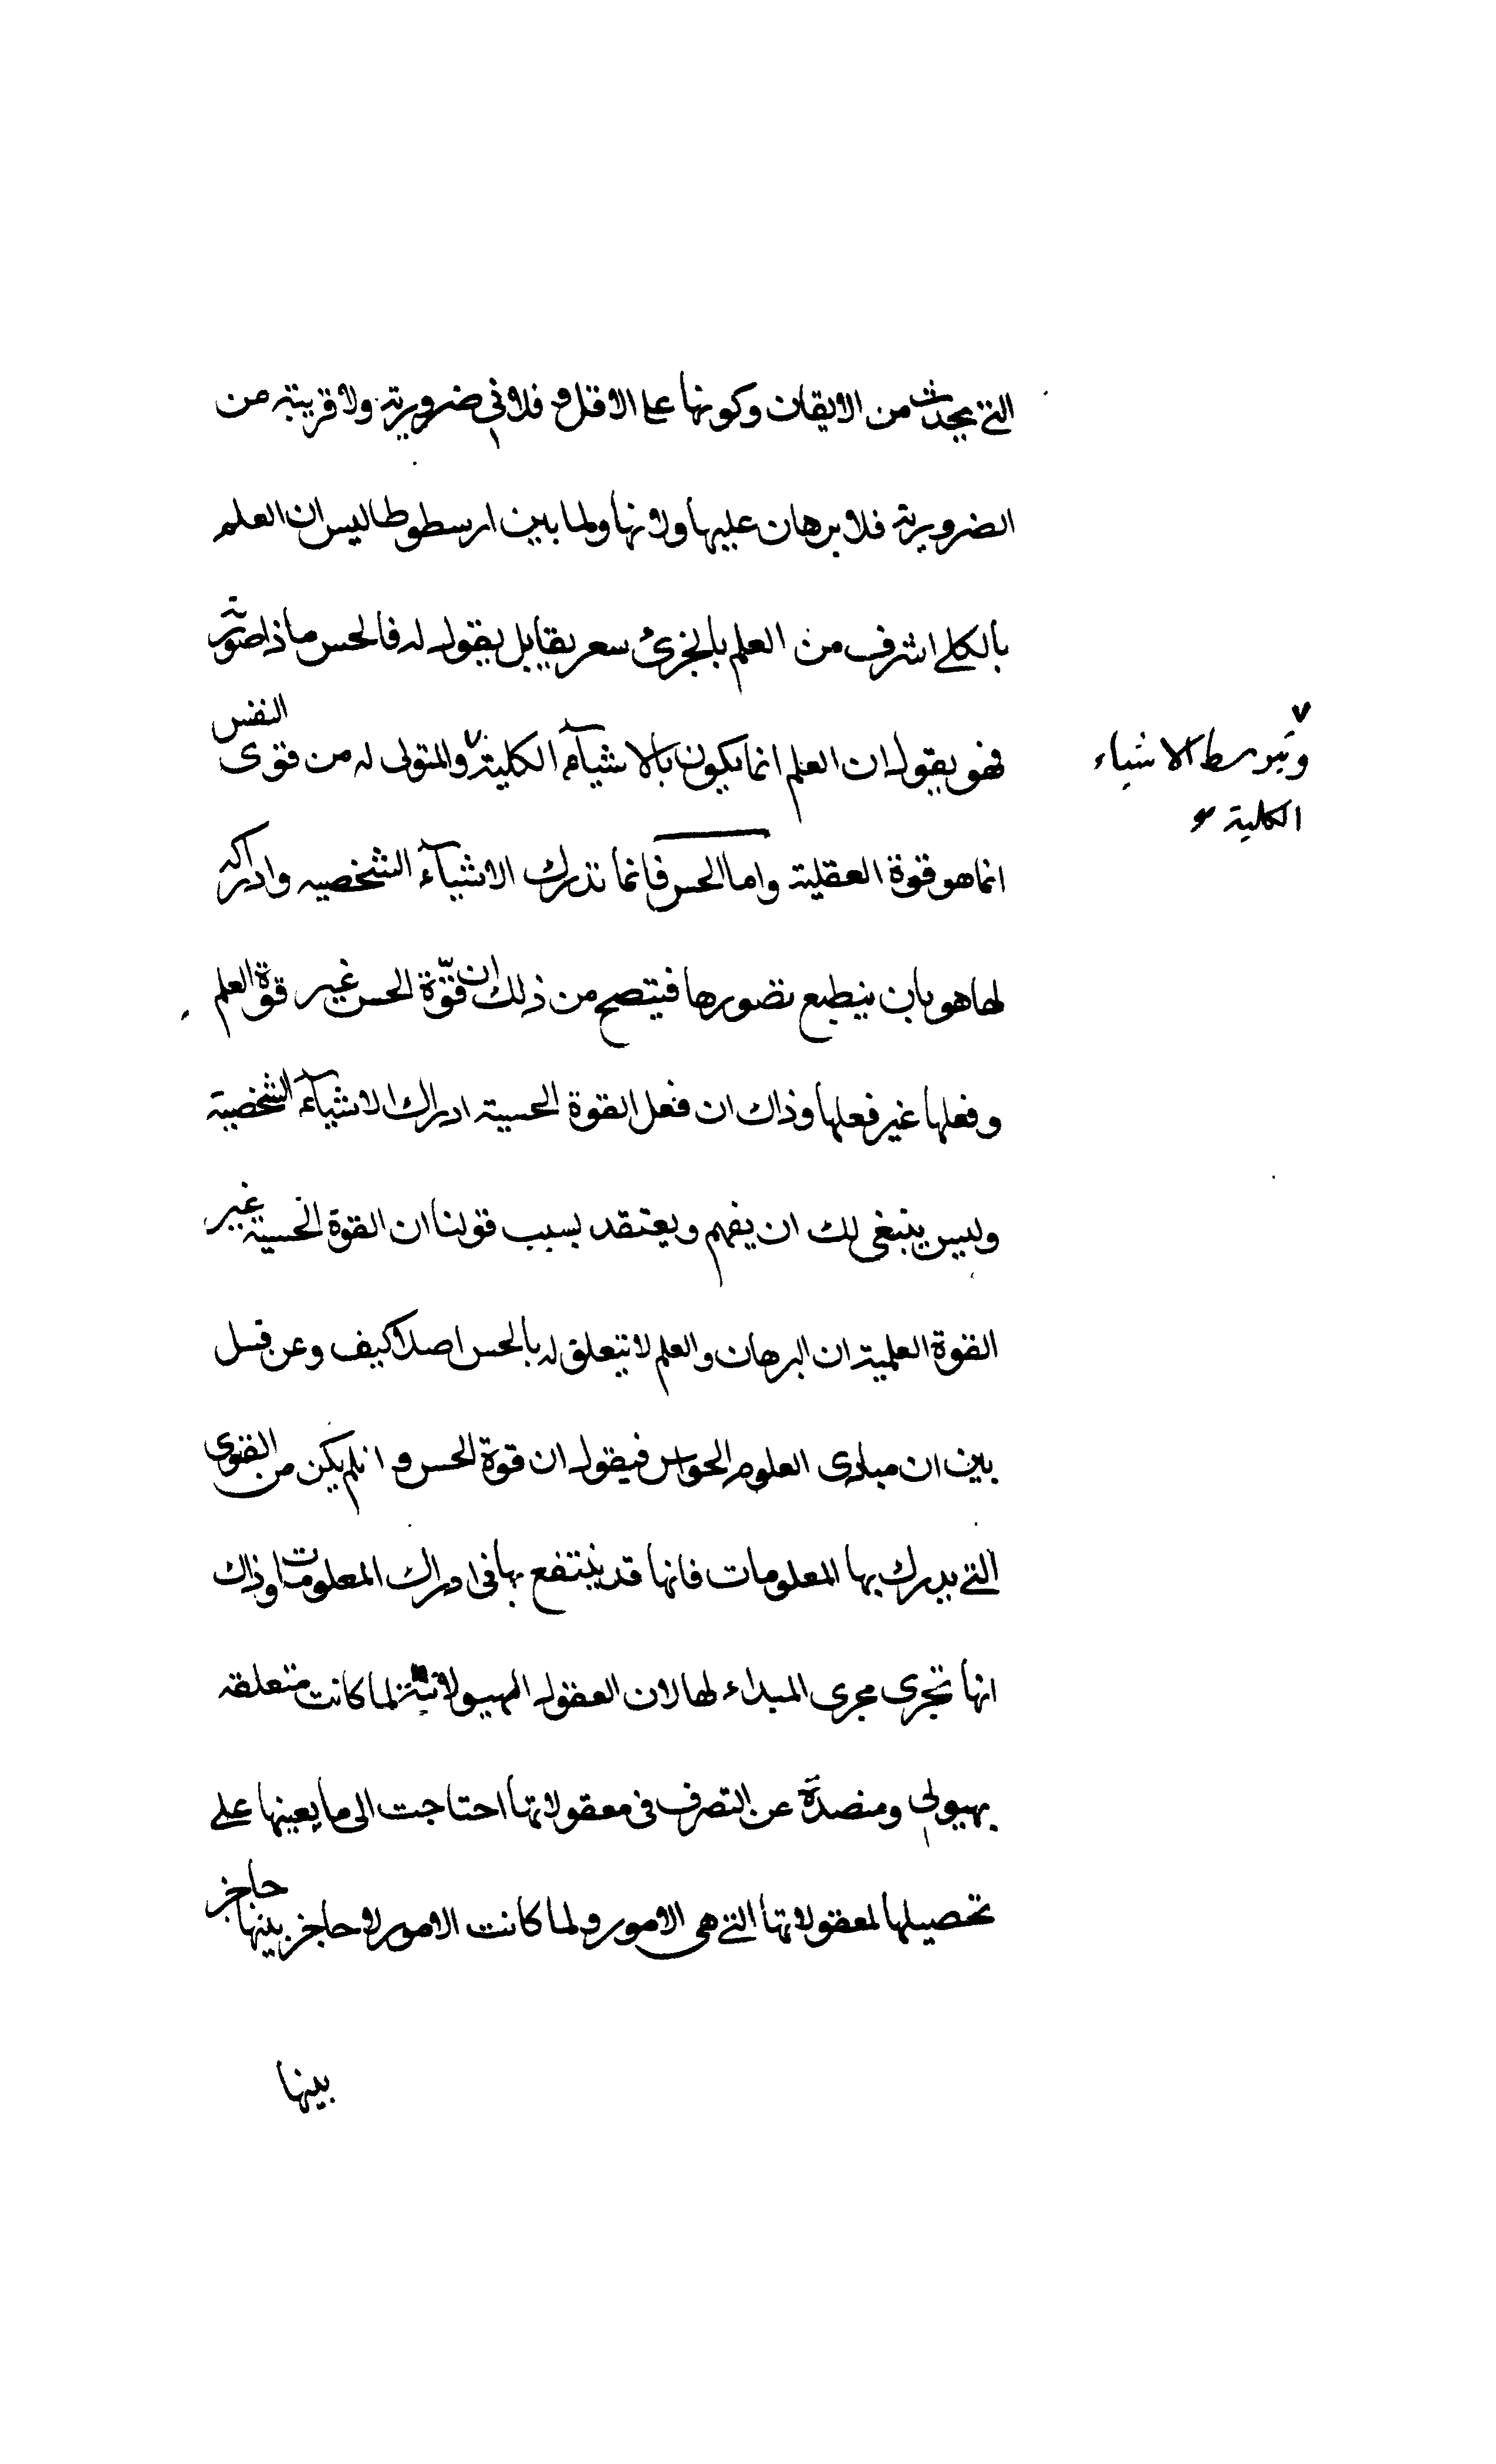 التي يحدث من الايقان وكونها على الاقل و فلا في ضرورية ولا قريبة من
الضرورية فلا برهان عليها ولانها ولما بين ارسطوطاليس ان العلم
بالكلي اشرف من العلم بالجزئ يقابل بقوله فالحس ماذا صورته
فهو يقول ان العلم انما يكون بالاشياء الكلية والمتولى له من قوى النفس
وبتوسط الاشياء
الكلية
انما هو قوة العقلية واما الحس فانما تدرك الاشيآء الشخصيه وادراكه
لها هو بان ينطبع بصورها فيتصح من ذلك ان قوّة الحس غير قوة العلم
وفعلها غير فعلها وذاك ان فعل القوة الحسية ادراك الاشيآء الشخصية
وليس ينبغي لك ان يفهم ويعتقد بسبب قولنا ان القوة الحسية غير
القوة العلمية ان البرهان والعلم لا تتعلق له بالحس اصلا وكيف وعن قبل
بين ان مبادى العلوم الحواس فيقول ان قوة الحس و انلم يكن من القوى
التي يدرك بها المعلومات فانها قد ينتفع بها فى ادراك المعلومات وذاك
انها تجرى مجرى المبداء لها لان العقول الهيولانية لما كانت متعلقه
بهيولى ومنصدة عن التصرف فى معقولاتها احتاجت الى ما يعينها على
تحصيلها لمعقولاتها التي هى الامور ولما كانت الامور لا حاجز بينها حاجز
بينها